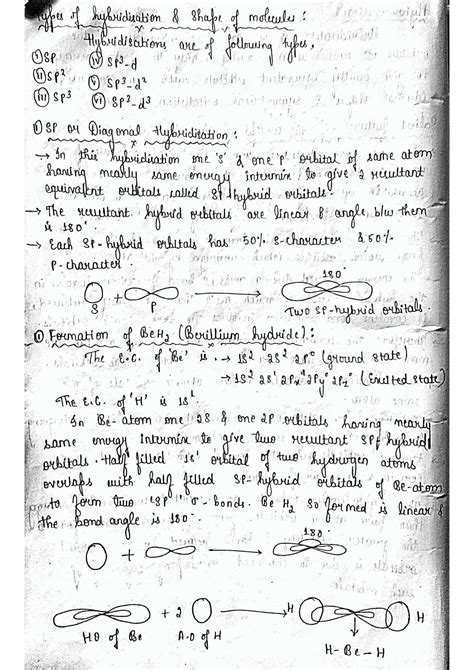 Types of hybridisation & Shape of molecules :
Hybridisations are of following types,
(i) SP (iv) SP³-d
(ii) SP² (v) SP³-d²
(iii) SP³ (vi) SP³-d³
(i) SP or Diagonal Hybridisation :
→ In this hybridisation one 's' & one 'p' orbital of same atom
having nearly same energy intermix to give 2 resultant
equivalent orbitals called SP-hybrid orbitals.
→ The resultant hybrid orbitals are linear & angle b/w them
is 180°.
→ Each SP-hybrid orbitals has 50% S-character & 50%
P-character.
180°
S + P → Two SP-hybrid orbitals.
(i) Formation of BeH₂ (Berillium hydride) :
The E.C. of 'Be' is → 1S² 2S² 2P⁰ (ground state)
→ 1S² 2S¹ 2Px 2Py⁰ 2Pz⁰ (Excited state)
The E.C. of 'H' is 1S¹.
In Be-atom one 2S & one 2P orbitals having nearly
same energy intermix to give two resultant SP hybrid
orbitals. Half filled 1S¹ orbital of two hydrogen atoms
overlaps with half filled SP-hybrid orbitals of Be-atom
to form two σ-bonds. BeH₂ so formed is linear &
the bond angle is 180°.
+ → 180°
+ 2 → H H
HO of Be A.O of H H-Be-H